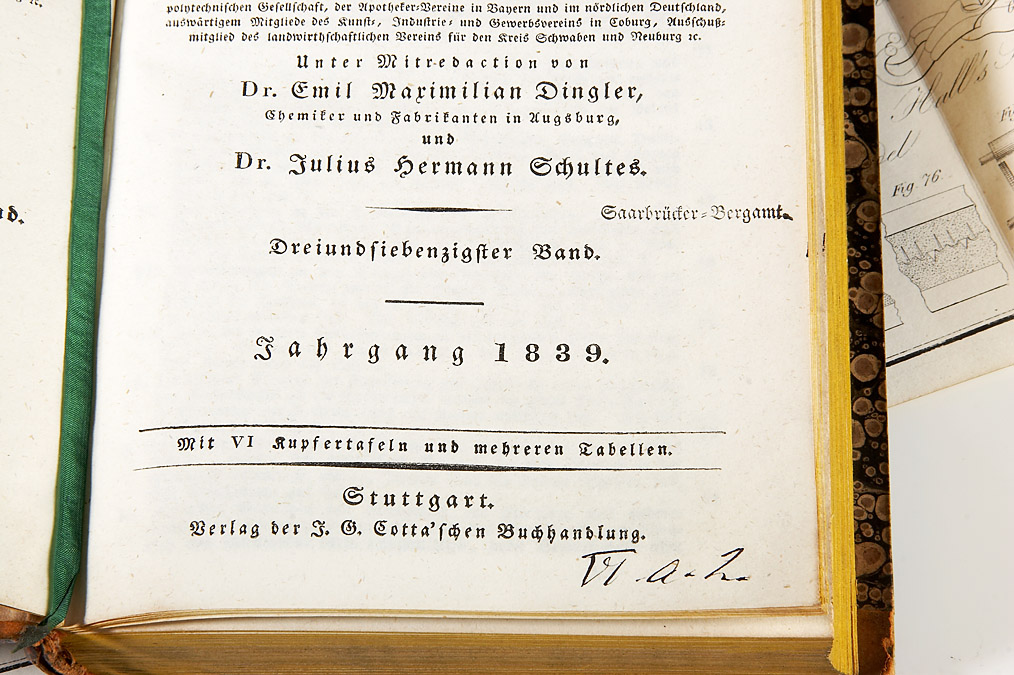 polytechnischen Gesellschaft, der Apotheker-Vereine in Bayern und im nördlichen Deutschland,
auswärtigem Mitgliede des Kunst-, Industrie- und Gewerbsvereins in Coburg, Ausschuß-
mitglied des landwirthschaftlichen Vereins für den Kreis Schwaben und Neuburg ꝛc.
Unter Mitredaction von
Dr. Emil Maximilian Dingler,
Chemiker und Fabrikanten in Augsburg,
und
Dr. Julius Hermann Schultes.
Saarbrücker-Bergamt.
Dreiundsiebenzigster Band.
Jahrgang 1839.
Mit VI Kupfertafeln und mehreren Tabellen.
Stuttgart.
Verlag der J. G. Cotta'schen Buchhandlung.
VI. a. 2.
nd.
Hall's
Fig. 76.